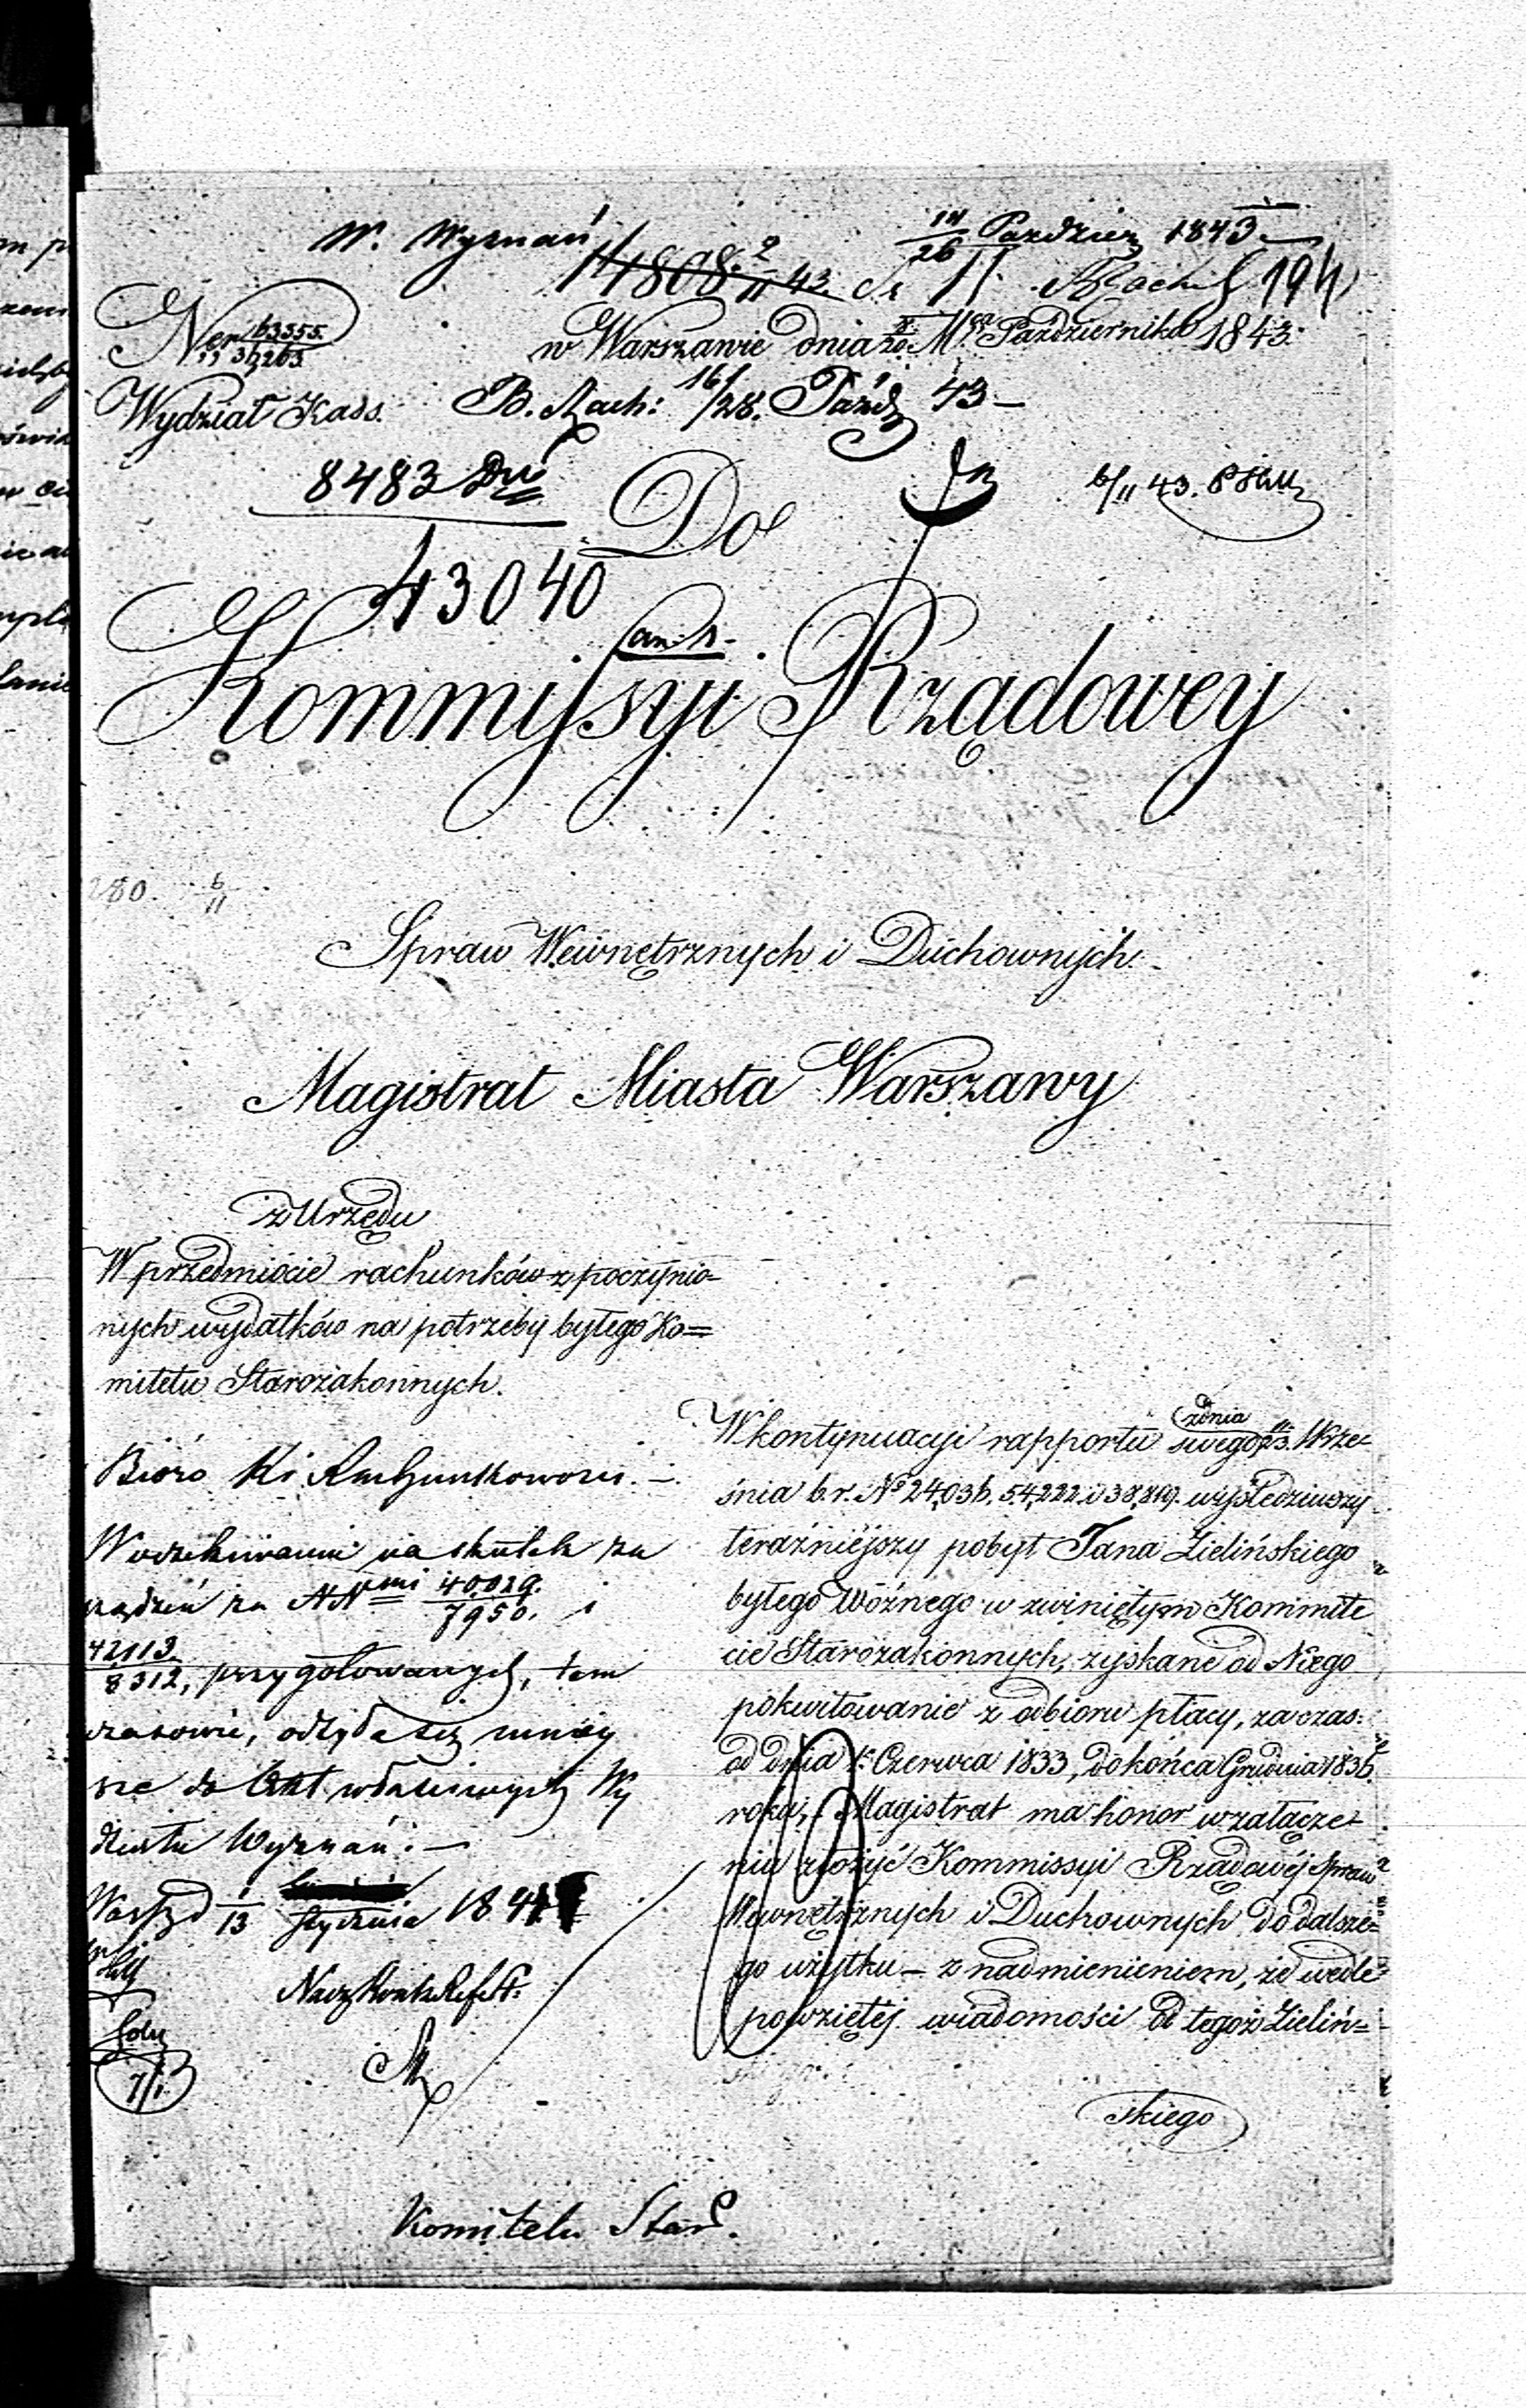 W. Wyznań
14/26 Paździer 1843.
14808. 2/11 43.
194
Ner 63355.
34263
w Warszawie dnia Mca Października 1843.
Wydział Kass.
B. Rach: 16/28. Paźd 43 –
8483 Dni
6/11 43.
Do
43040
Kommissyi Rządowey
280. 6/11
Spraw Wewnętrznych i Duchownych.
Magistrat Miasta Warszawy
z Urzędu
W przedmiocie rachunków z poczynio-
nych wydatków na potrzeby byłego Ko=
mitetu Starozakonnych.
Bióro
W oczekiwaniu na skutek za
rządzeń za NNmi 40,029./7950. i
42113./8312, przygotowanych, tym
czasowie, odkłada się ninieÿ
sze do Akt właściwych Wy
działu Wyznań. –
Warsz d 1/13 Stycznia 184
7/1.
W kontynuacyi rapportu swego z dnia 11/23. Wrze-
śnia b.r. No 24,036. 54,222. i 38,819. wyśledziwszy
teraźnieÿszy pobyt Jana Zielińskiego
byłego Woźnego w zwiniętym Kommite
cie Starozakonnych, zyskane od Niego
pokwitowanie z odbioru płacy, za czas
od dnia 1. Czerwca 1833, do końca Grudnia 1836.
roku, Magistrat ma honor w załącze-
niu złożyć Kommissyi Rządowéj Spraw
Wewnętrznych i Duchownych do dalsze=
go użytku – z nadmienieniem, że wedle
powziętéj wiadomości od tegoż Zieliń=
skiego
Komitetu Star.